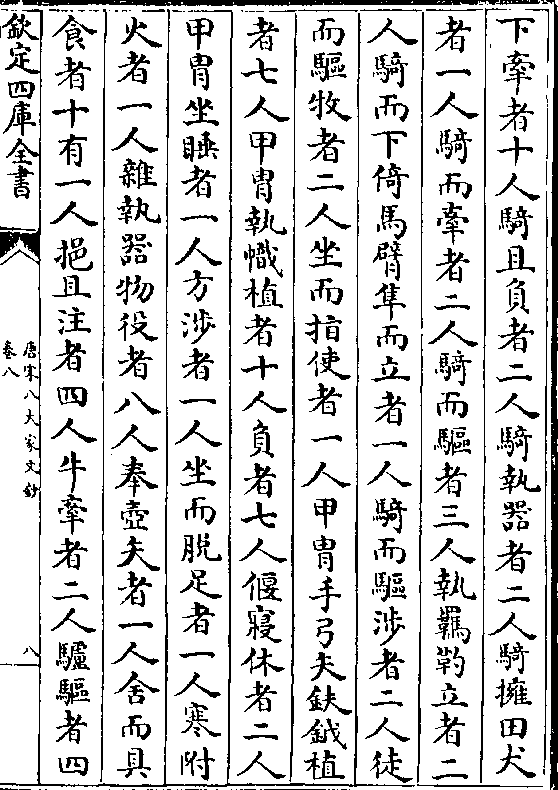 下牽者十人騎且負者二人騎執器者二人騎擁田犬
者一人騎而牽者二人騎而驅者三人執羈靮立者二
人騎而下倚馬臂隼而立者一人騎而驅涉者二人徒
而驅牧者二人坐而指使者一人甲胄手弓矢鈇鉞植
者七人甲胄執幟植者十人負者七人偃寢休者二人
甲胄坐睡者一人方涉者一人坐而脫足者一人寒附
火者一人雜執器物役者八人奉壺矢者一人舍而具
食者十有一人挹且注者四人牛牽者二人驢驅者四
欽定四庫全書
唐宋八大家文鈔
卷八
八